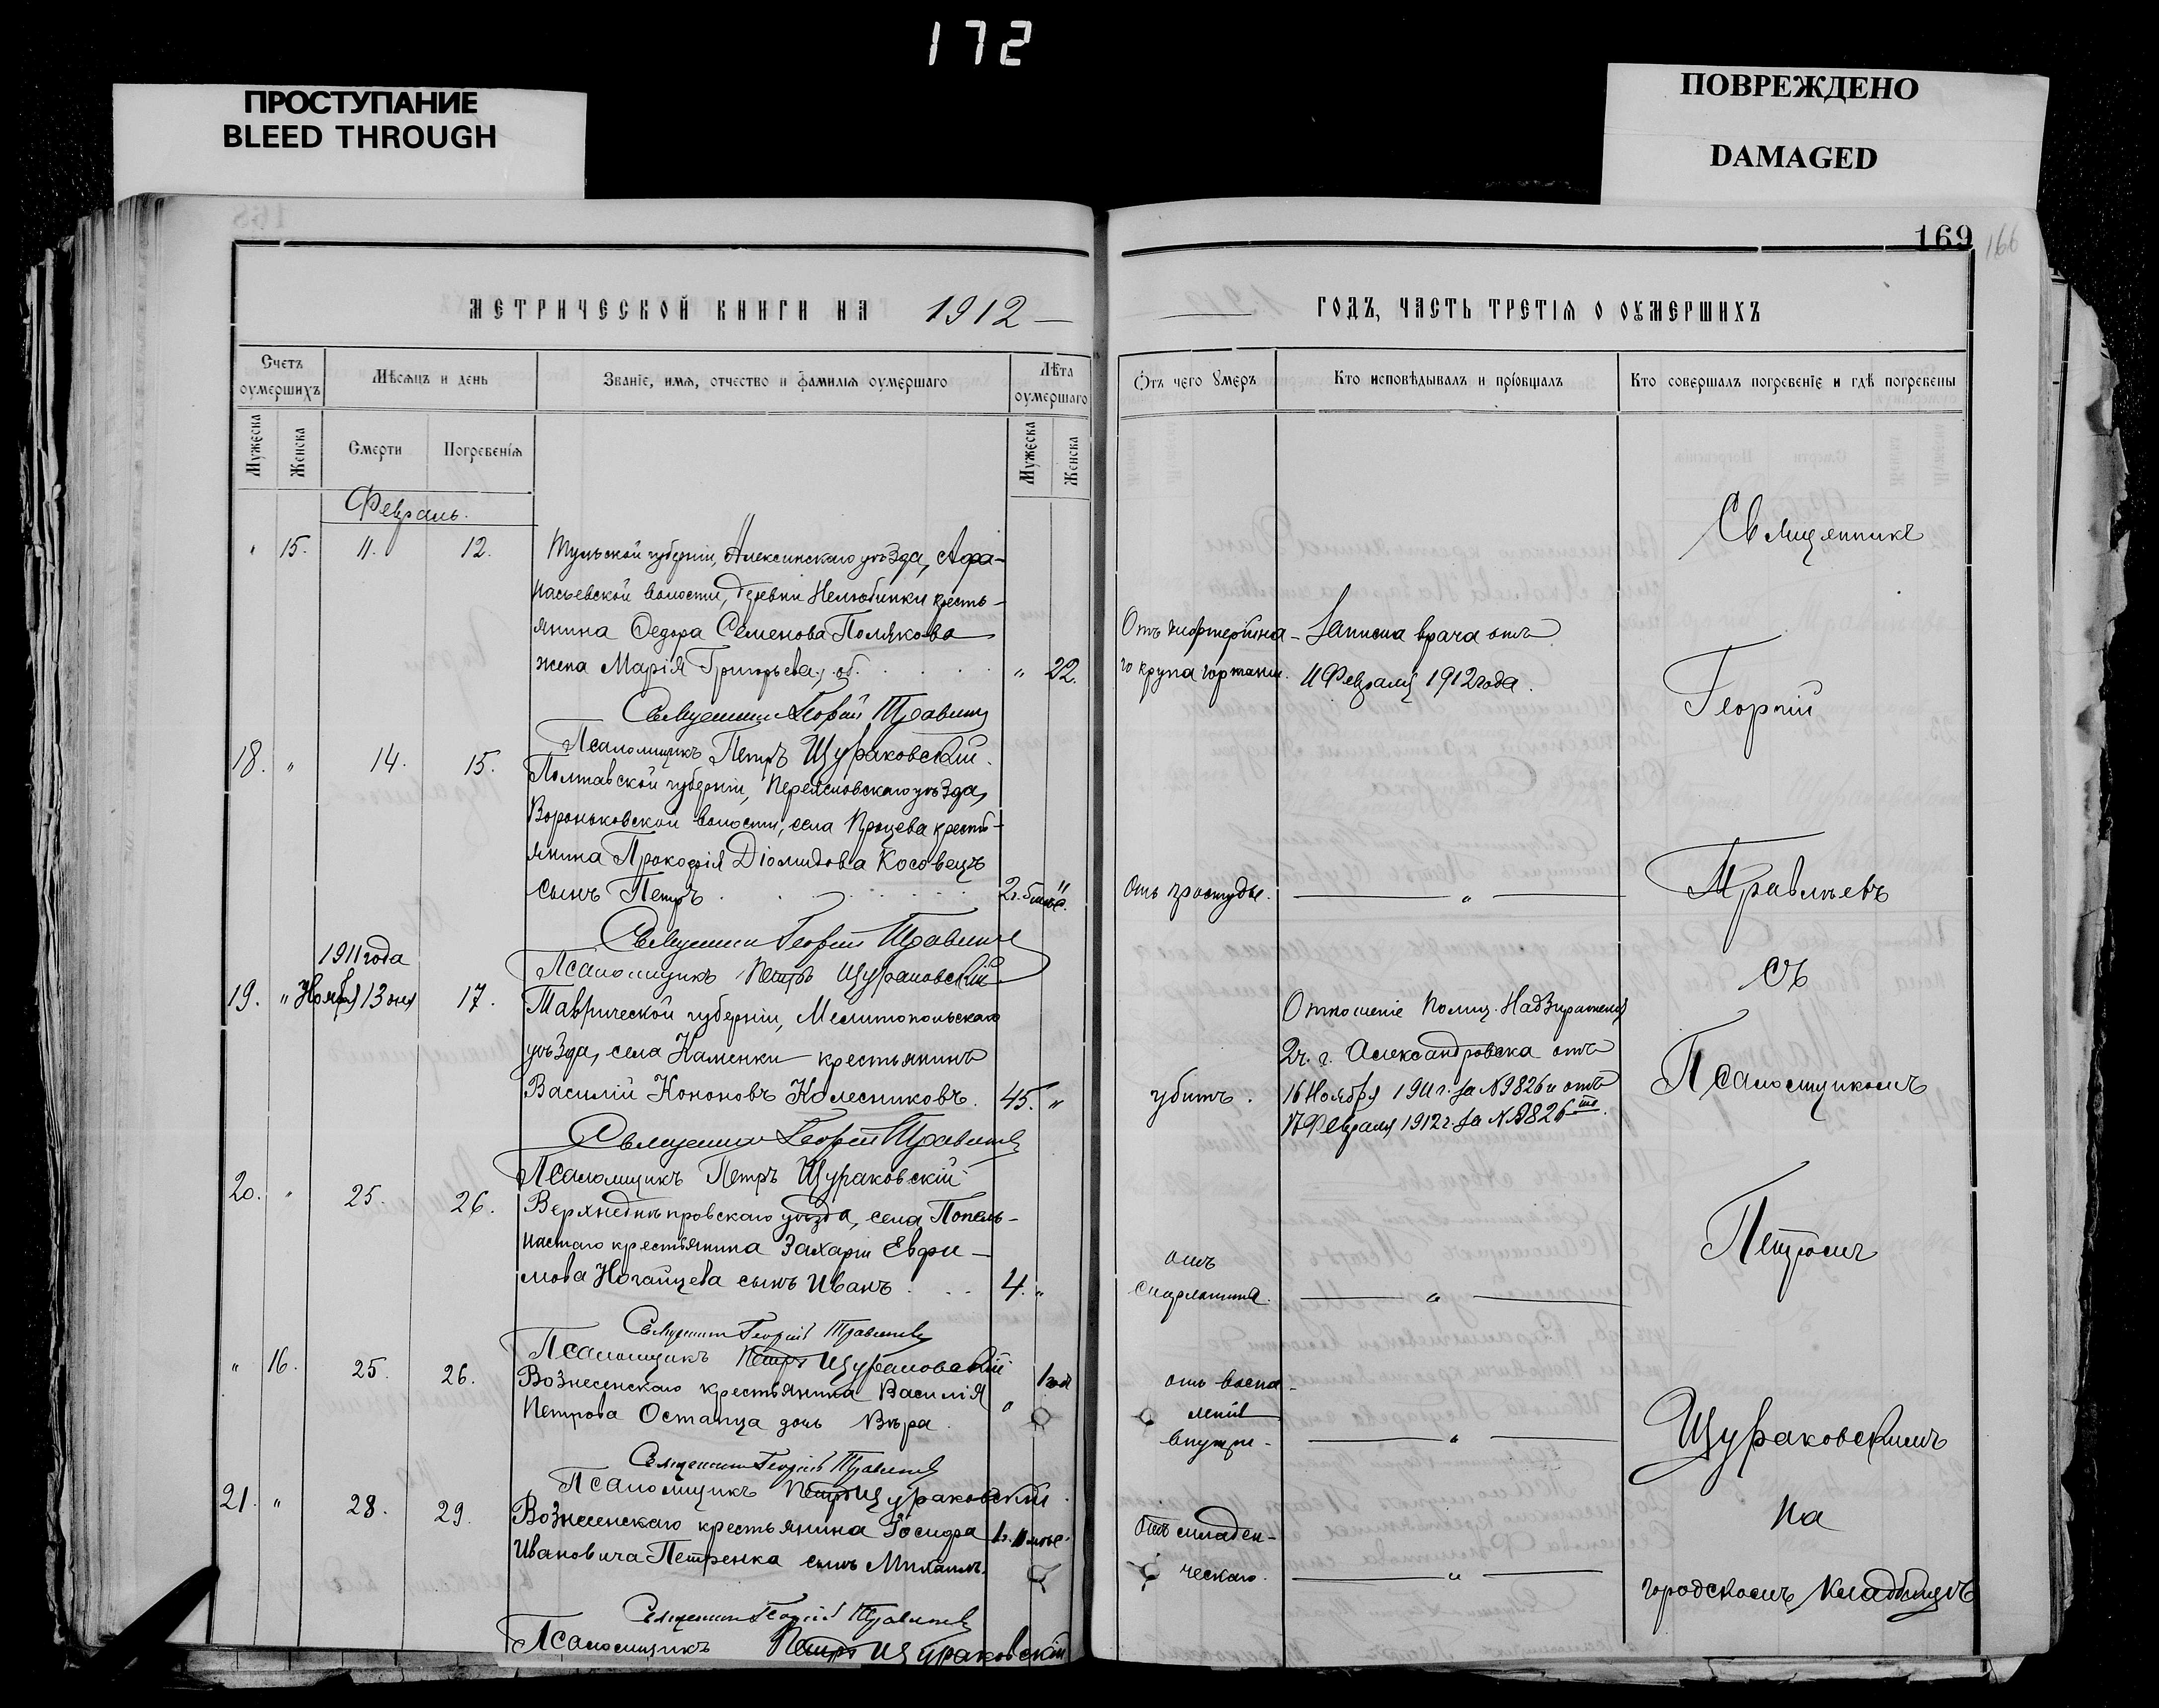 172
ПРОСТУПАНИЕ
BLEED THROUGH
ПОВРЕЖДЕНО
DAMAGED
169
166
МЕТРИЧЕСКОЙ КНИГИ НА 1912
ГОДЪ, ЧАСТЬ ТРЕТІЯ О ОУМЕРШИХЪ
Счетъ оумершихъ
Мѣсяцъ и день
Званіе, имя, отчество и фамилія оумершаго
Лѣта оумершаго
Отъ чего умеръ
Кто исповѣдывалъ и пріобщалъ
Кто совершалъ погребеніе и гдѣ погребены
Мужеска
Женска
Смерти
Погребенія
Мужеска
Женска
Февраль.
" 15. 11. 12. Тульской губерніи, Алексинскаго уѣзда, Афа-
насьевской волости, деревни Нелюбинки кресть-
янина Федора Семенова Полякова
жена Марія Григорьева, об. " 22.
Отъ дифтерійна-
го крупа гортани.
Записка врача отъ
11 Февраля 1912 года.
Священникъ Георгій Травинъ
Псаломщикъ Петръ Щураковскій.
18. " 14. 15. Полтавской губерніи, Переяславскаго уѣзда,
Вороньковской волости, села Процева кресть-
янина Прокофія Діомидова Косовецъ
сынъ Петръ
Отъ простуды. "
Священникъ Георгій
Псаломщикъ Петръ Щураковскій
1911 года
19. " Ноября 13 дня 17. Таврической губерніи, Мелитопольскаго
уѣзда, села Каменки крестьянинъ
Василій Кононовъ Колесниковъ. 45. "
убитъ.
Отношеніе Полиц. Надзирателя
2 ч. г. Александровска отъ
16 Ноября 1911 г. за N 9826 и отъ
17 Февраля 1912 г. за N 9826
Священникъ Георгій
Псаломщикъ Петръ Щураковскій
20. " 25. 26. Верхнеднѣпровскаго уѣзда, села Попель-
настаго крестьянина Захарія Евфи-
мова Ногайцева сынъ Иванъ 4. "
отъ
скарлатина. "
Священникъ Георгій
Псаломщикъ Петръ Щураковскій
" 16. 25. 26. Вознесенскаго крестьянина Василія
Петрова Остапца дочь Вѣра. " 1 год
отъ воспа-
ленія
внутри- "
Священникъ Георгій
Псаломщикъ Петръ Щураковскій
21. " 28. 29. Вознесенскаго крестьянина Іосифа
Ивановича Петренка сынъ Михаилъ.
Отъ младен-
ческаго. "
Священникъ Георгій
Псаломщикъ Петръ Щураковскій
Священникъ
Георгій
съ
Псаломщикомъ
Петромъ
Щураковскимъ
на
городскомъ кладбищѣ